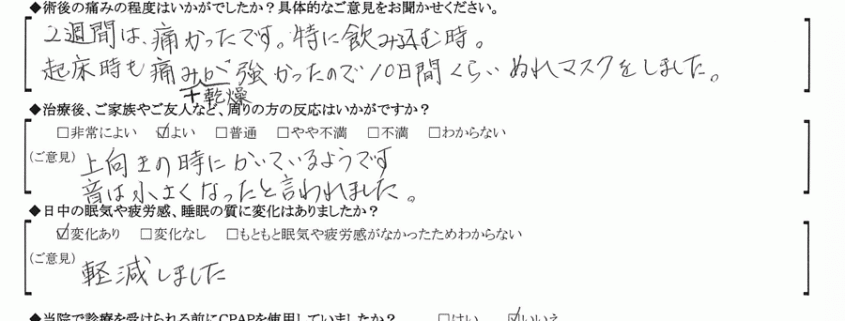 ◆術後の痛みの程度はいかがでしたか？具体的なご意見をお聞かせください。
2週間は、痛かったです。特に飲み込む時。
起床時も痛みが強かったので10日間くらいぬれマスクをしました。
+乾燥
◆治療後、ご家族やご友人など、周りの方の反応はいかがですか？
□非常によい ☑よい □普通 □やや不満 □不満 □わからない
(ご意見) 上向きの時にかいているようです
音は小さくなったと言われました。
◆日中の眠気や疲労感、睡眠の質に変化はありましたか？
☑変化あり □変化なし □もともと眠気や疲労感がなかったためわからない
(ご意見) 軽減しました
◆当院で診療を受けられる前にCPAPを使用していましたか？ □はい ☑いいえ